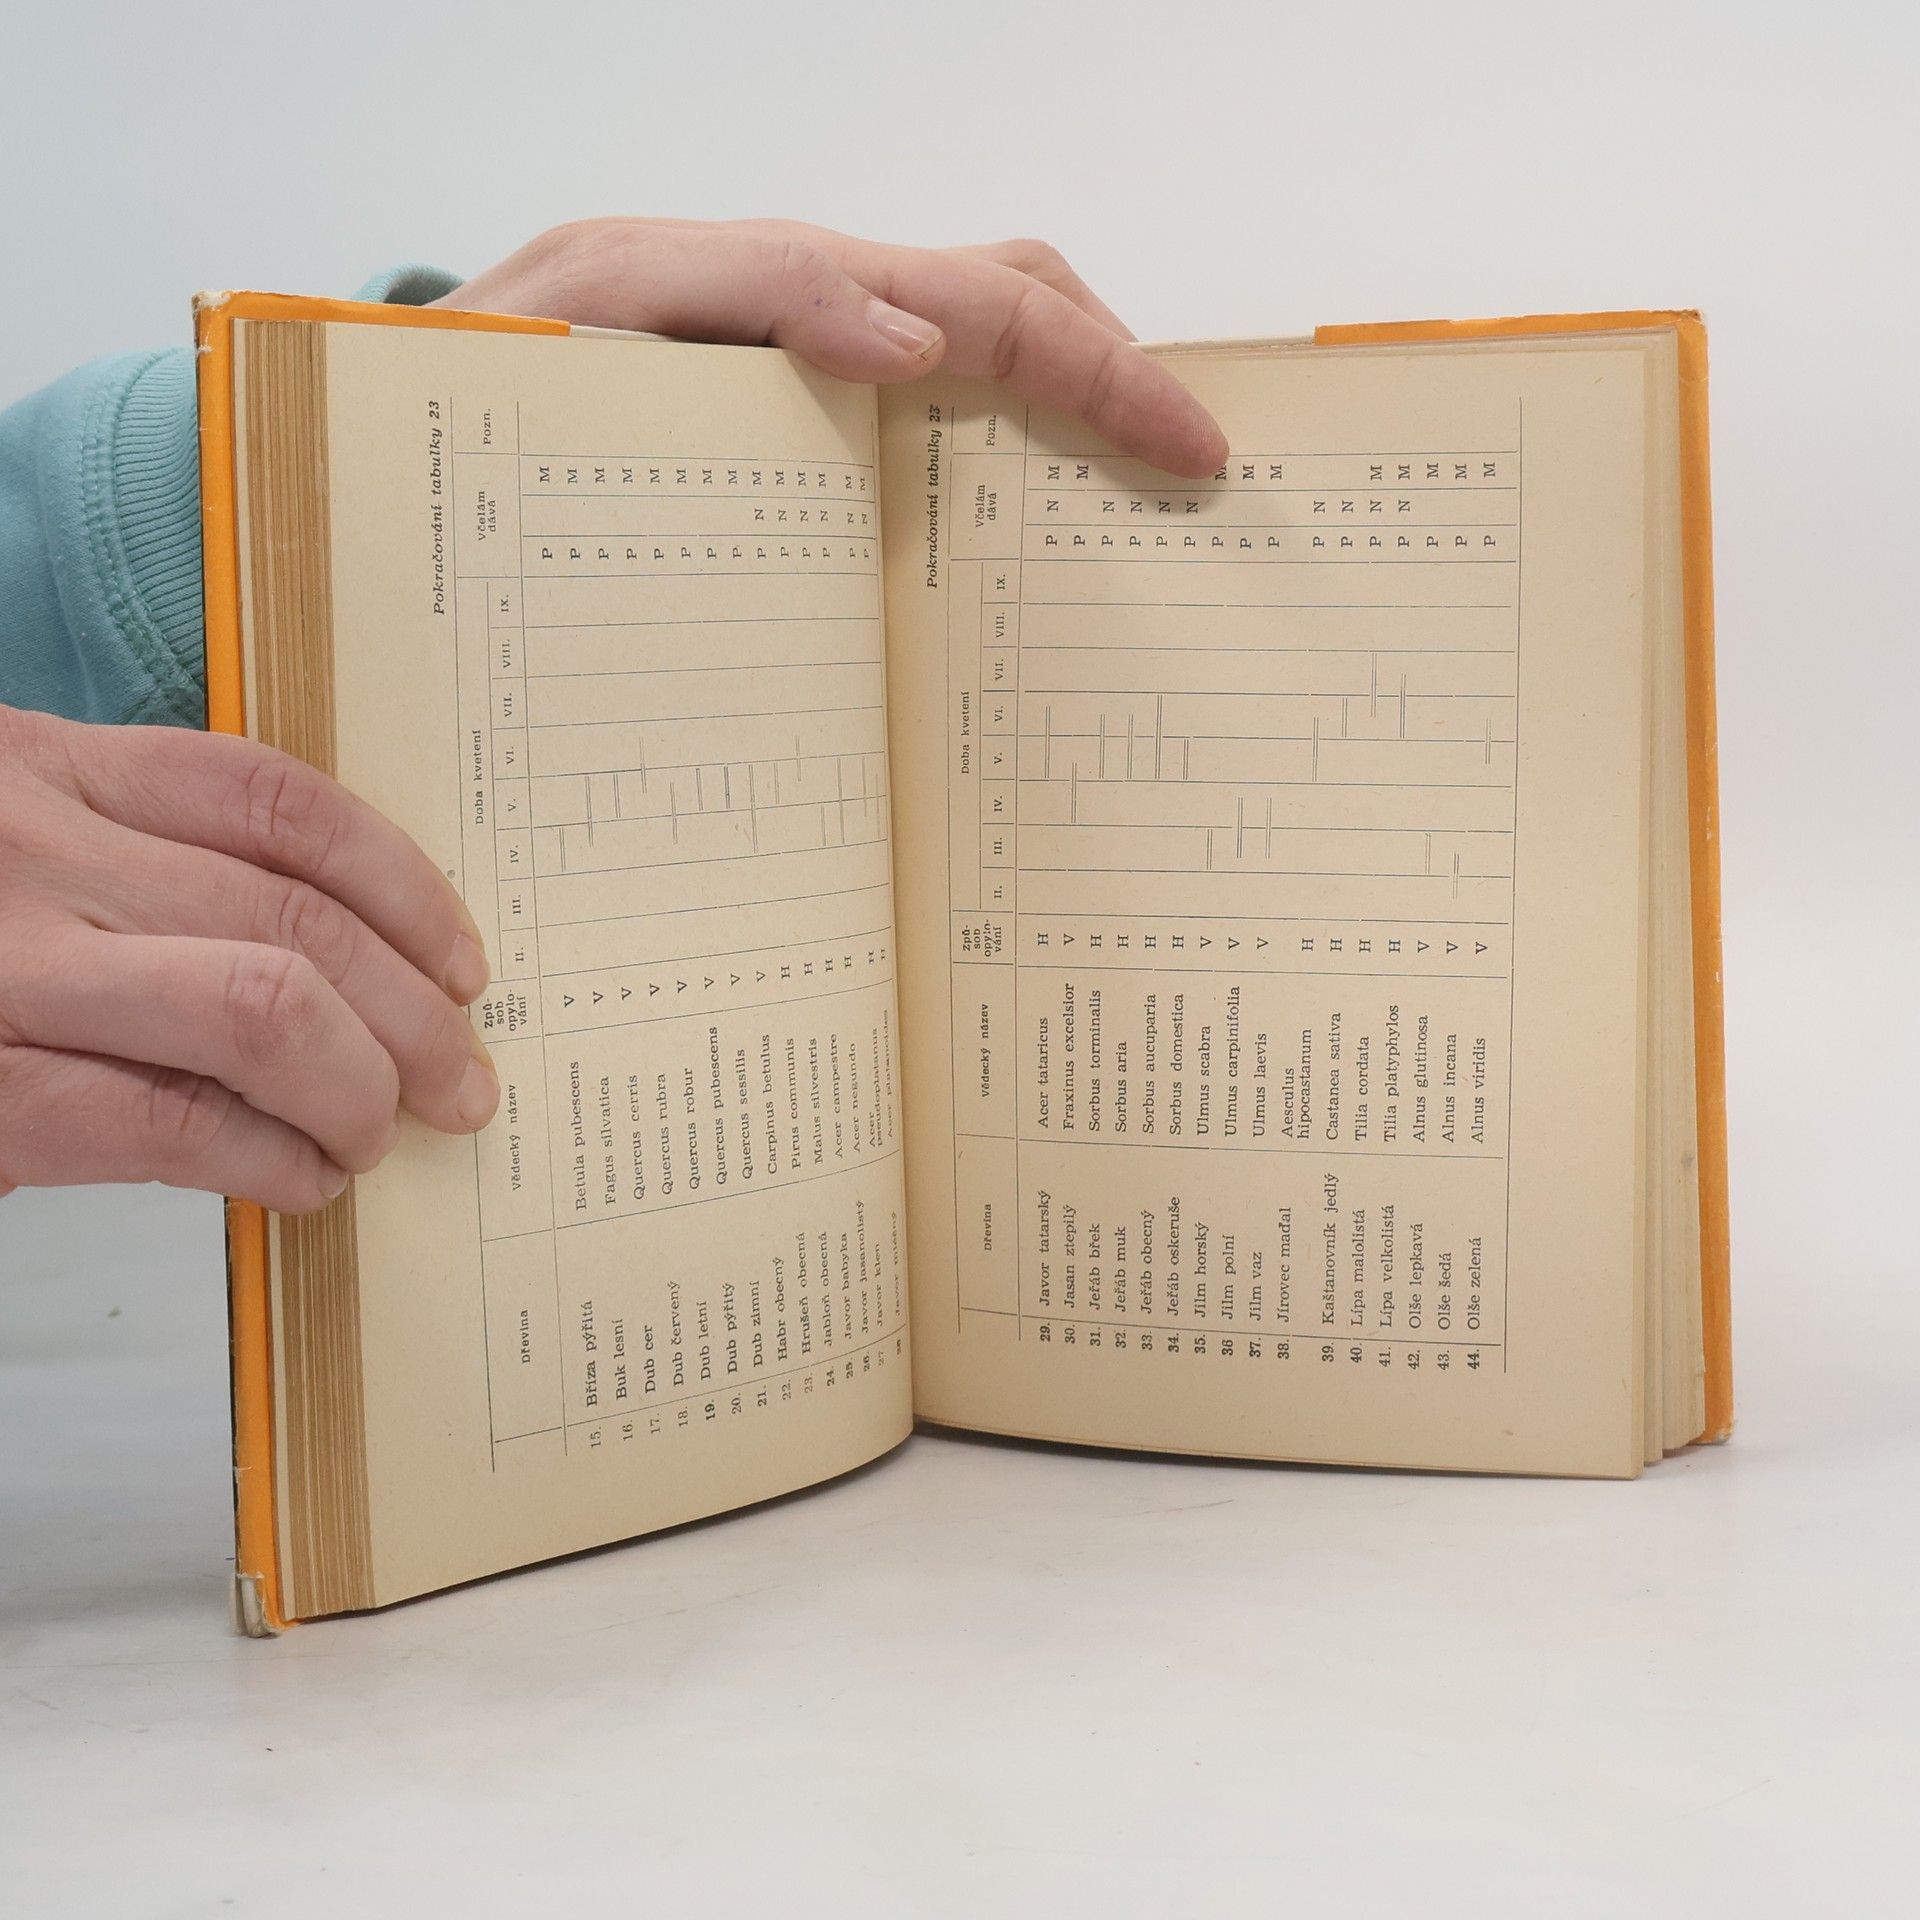 Pokračování tabulky 23
Dřevina Vědecký název Způ-sob opylo-vání Doba kvetení Včelám dává Pozn.
II. III. IV. V. VI. VII. VIII. IX.
15. Bříza pýřitá Betula pubescens V P M
16. Buk lesní Fagus silvatica V P M
17. Dub cer Quercus cerris V P M
18. Dub červený Quercus rubra V P M
19. Dub letní Quercus robur V P M
20. Dub pýřitý Quercus pubescens V P M
21. Dub zimní Quercus sessilis V P M
22. Habr obecný Carpinus betulus V P M
23. Hrušeň obecná Pirus communis H P N M
24. Jabloň obecná Malus silvestris H P N M
25. Javor babyka Acer campestre H P N M
26. Javor jasanolistý Acer negundo H P N M
27 Javor klen Acer pseudoplatanus H P N M
28 Javor mléčný Acer platanoides H P N M
Pokračování tabulky 23
Dřevina Vědecký název Způ-sob opylo-vání Doba kvetení Včelám dává Pozn.
II. III. IV. V. VI. VII. VIII. IX.
29. Javor tatarský Acer tataricus H P N M
30. Jasan ztepilý Fraxinus excelsior V P M
31. Jeřáb břek Sorbus torminalis H P N
32. Jeřáb muk Sorbus aria H P N
33. Jeřáb obecný Sorbus aucuparia H P N
34. Jeřáb oskeruše Sorbus domestica H P N
35. Jilm horský Ulmus scabra V P M
36 Jilm polní Ulmus carpinifolia V P M
37. Jilm vaz Ulmus laevis V P M
38. Jírovec maďal Aesculus
hipocastanum H P N
39. Kaštanovník jedlý Castanea sativa H P N
40. Lípa malolistá Tilia cordata H P N M
41. Lípa velkolistá Tilia platyphylos H P N M
42. Olše lepkavá Alnus glutinosa V P M
43. Olše šedá Alnus incana V P M
44. Olše zelená Alnus viridis V P M